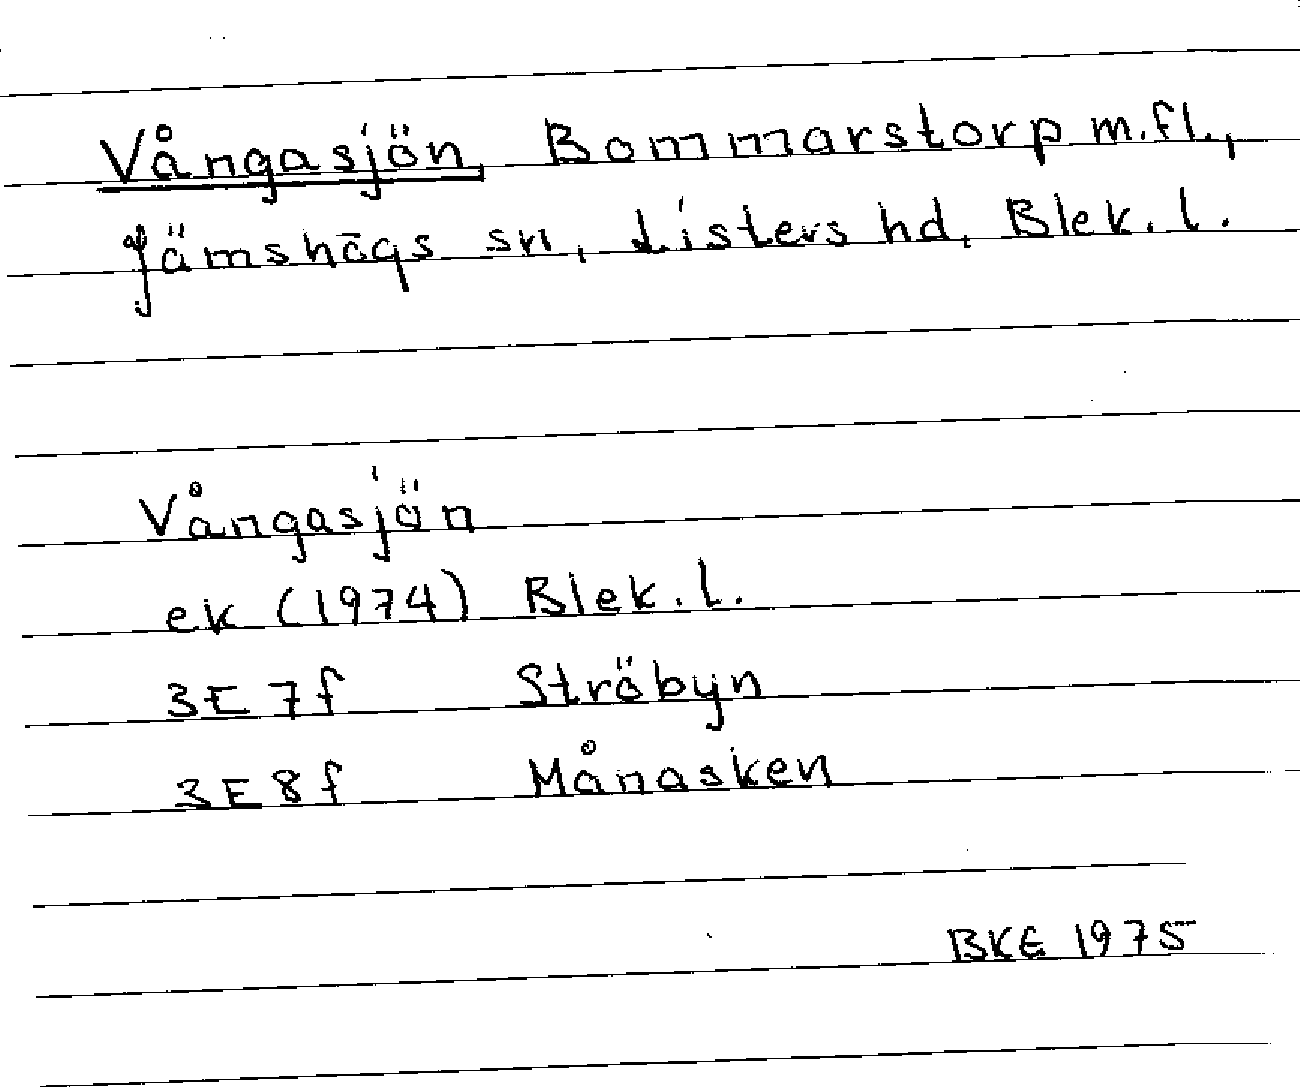 Vångasjön, Bommarstorp m.fl.,
Jämshögs sn, Listers hd, Blek. l.
Vångasjön
ek (1974) Blek. l.
3E 7f Ströbyn
3E 8f Månasken
BKE 1975